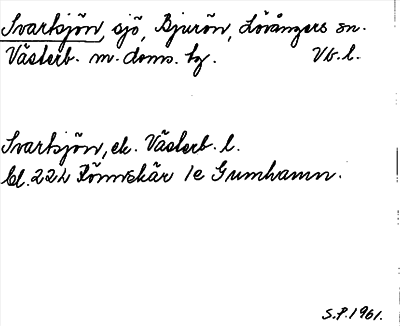 Svartsjön, sjö, Bjurön, Lövångers sn.
Västerb. m. doms. hg. Vb. l.
Svartsjön, ek. Västerb. l.
bl. 222 Rönnskär 1e Gumhamn.
S.P. 1961.